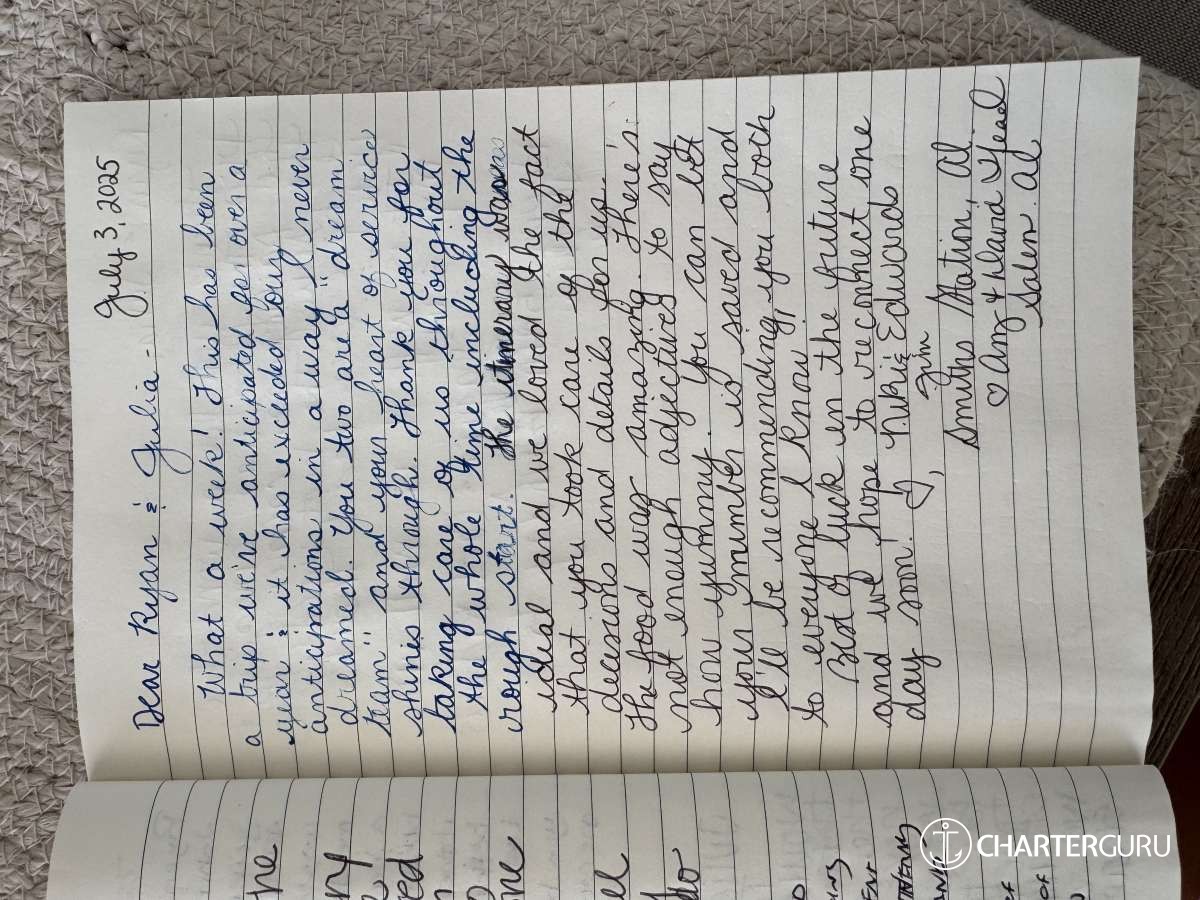 July 3, 2025
Dear Ryan & Julia -
What a week! This has been
a trip we've anticipated for over a
year & it has exceeded our
anticipations in a way I never
dreamed. You two are a "dream
team" and your heart of service
shines through. Thank you for
taking care of us throughout
the whole time including the
rough start. The itinerary was
ideal and we loved the fact
that you took care of the
decisions and details for us.
The food was amazing. There's
not enough adjectives to say
how yummy. You can bet
your number is saved and
I'll be recommending you both
to everyone I know.
Best of luck in the future
and we hope to reconnect one
day soon! ♡, Nikki & Edwards
Jim
Smiths Station, Al
♡ Amy &
Salem. al
ne
ny
red
ne
ell
do
CHARTERGURU